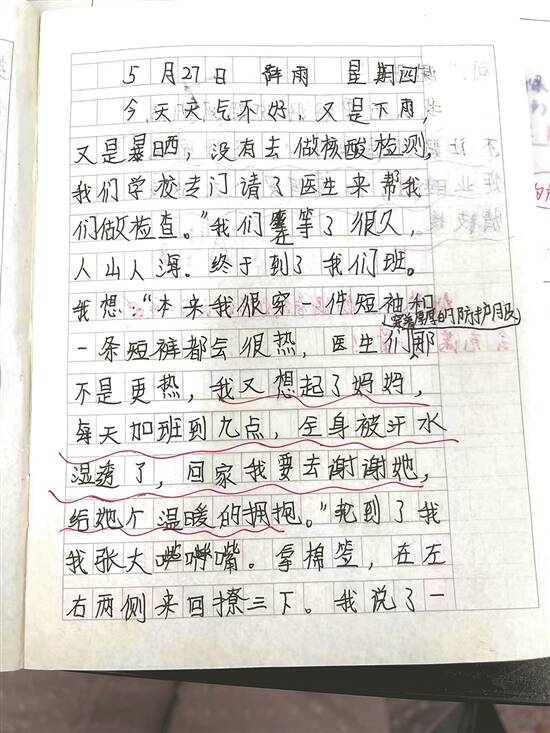 5月27日 阵雨 星期四
今天天气不好，又是下雨，
又是暴晒，没有去做核酸检测，
我们学校专门请了医生来帮我
们做检查。"我们等了很久，
人山人海。终于到了我们班。
我想："本来我很穿一件短袖和
穿着厚厚的防护服
一条短裤都会很热，医生们那
不是更热，我又想起了妈妈，
每天加班到九点，全身被汗水
湿透了，回家我要去谢谢她，
给她个温暖的拥抱。"轮到了我
我张大嘴。拿棉签，在左
右两侧来回撩三下。我说了一